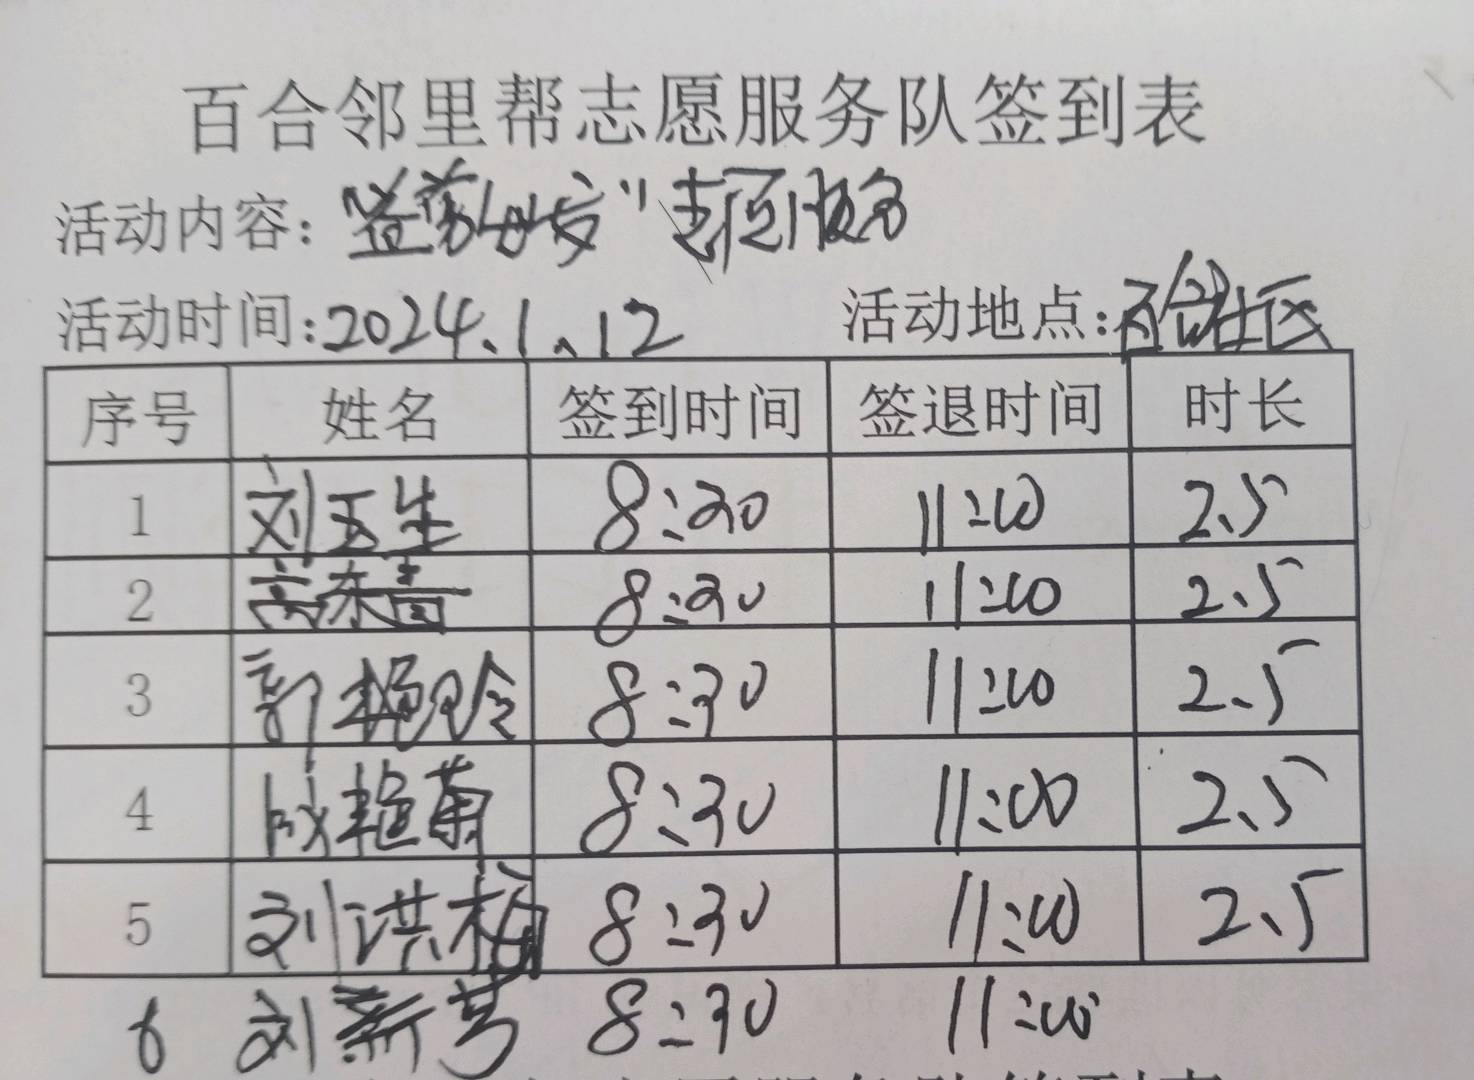 百合邻里帮志愿服务队签到表
活动内容：“益剪钟发”志愿服务
活动时间：2024.1.12 活动地点：百合社区
序号 姓名 签到时间 签退时间 时长
1 刘玉生 8:30 11:00 2.5
2 高东青 8:30 11:00 2.5
3 郭艳玲 8:30 11:00 2.5
4 成艳菊 8:30 11:00 2.5
5 刘洪梅 8:30 11:00 2.5
6 刘新 8:30 11:00